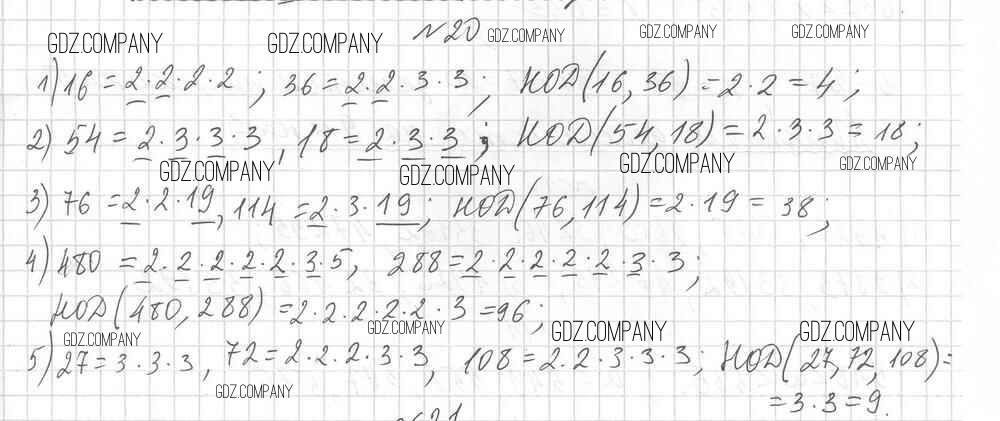 №20 GDZ.COMPANY GDZ.COMPANY GDZ.COMPANY
GDZ.COMPANY GDZ.COMPANY
1) 16 = 2·2·2·2 ; 36 = 2·2·3·3 ; НОД(16, 36) = 2·2 = 4 ;
2) 54 = 2·3·3·3 , 18 = 2·3·3 ; НОД(54, 18) = 2·3·3 = 18 ;
GDZ.COMPANY GDZ.COMPANY GDZ.COMPANY GDZ.COMPANY
3) 76 = 2·2·19 , 114 = 2·3·19 ; НОД(76, 114) = 2·19 = 38 ;
4) 480 = 2·2·2·2·2·3·5 , 288 = 2·2·2·2·2·3·3 ;
НОД(480, 288) = 2·2·2·2·2·3 = 96 ;
GDZ.COMPANY GDZ.COMPANY GDZ.COMPANY GDZ.COMPANY
5) 27 = 3·3·3 , 72 = 2·2·2·3·3 , 108 = 2·2·3·3·3 ; НОД(27, 72, 108) =
GDZ.COMPANY
= 3·3 = 9.